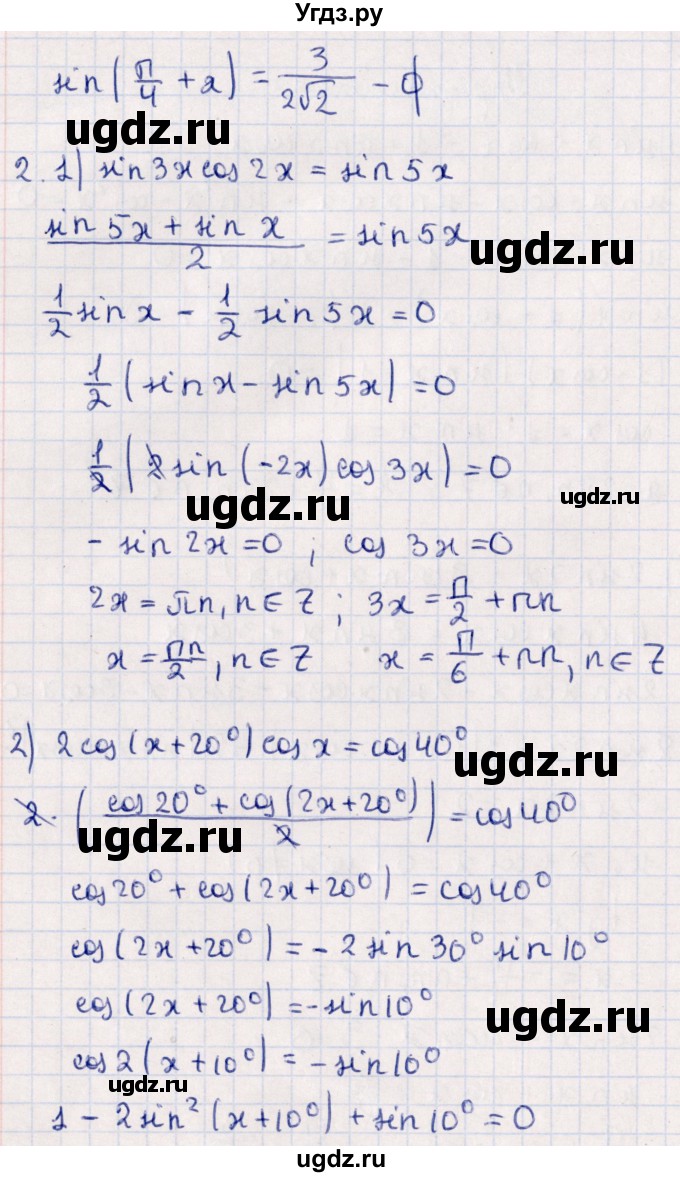 Угдз.ру
sin(π/4 + α) = 3/(2√2) - ф
ugdz.ru
2. 1) sin 3x cos 2x = sin 5x
(sin 5x + sin x)/2 = sin 5x
ugdz.ru
1/2 sin x - 1/2 sin 5x = 0
1/2 (sin x - sin 5x) = 0
1/2 (2 sin (-2x) cos 3x) = 0
ugdz.ru
ugdz.ru
- sin 2x = 0 ; cos 3x = 0
2x = πn, n ∈ Z ; 3x = π/2 + πn
x = πn/2, n ∈ Z x = π/6 + πn, n ∈ Z
2) 2 cos (x + 20°) cos x = cos 40°
ugdz.ru
2 · ((cos 20° + cos (2x + 20°))/2) = cos 40°
ugdz.ru
cos 20° + cos (2x + 20°) = cos 40°
cos (2x + 20°) = - 2 sin 30° sin 10°
cos (2x + 20°) = - sin 10°
ugdz.ru
cos 2 (x + 10°) = - sin 10°
ugdz.ru
1 - 2 sin² (x + 10°) + sin 10° = 0
ugdz.ru